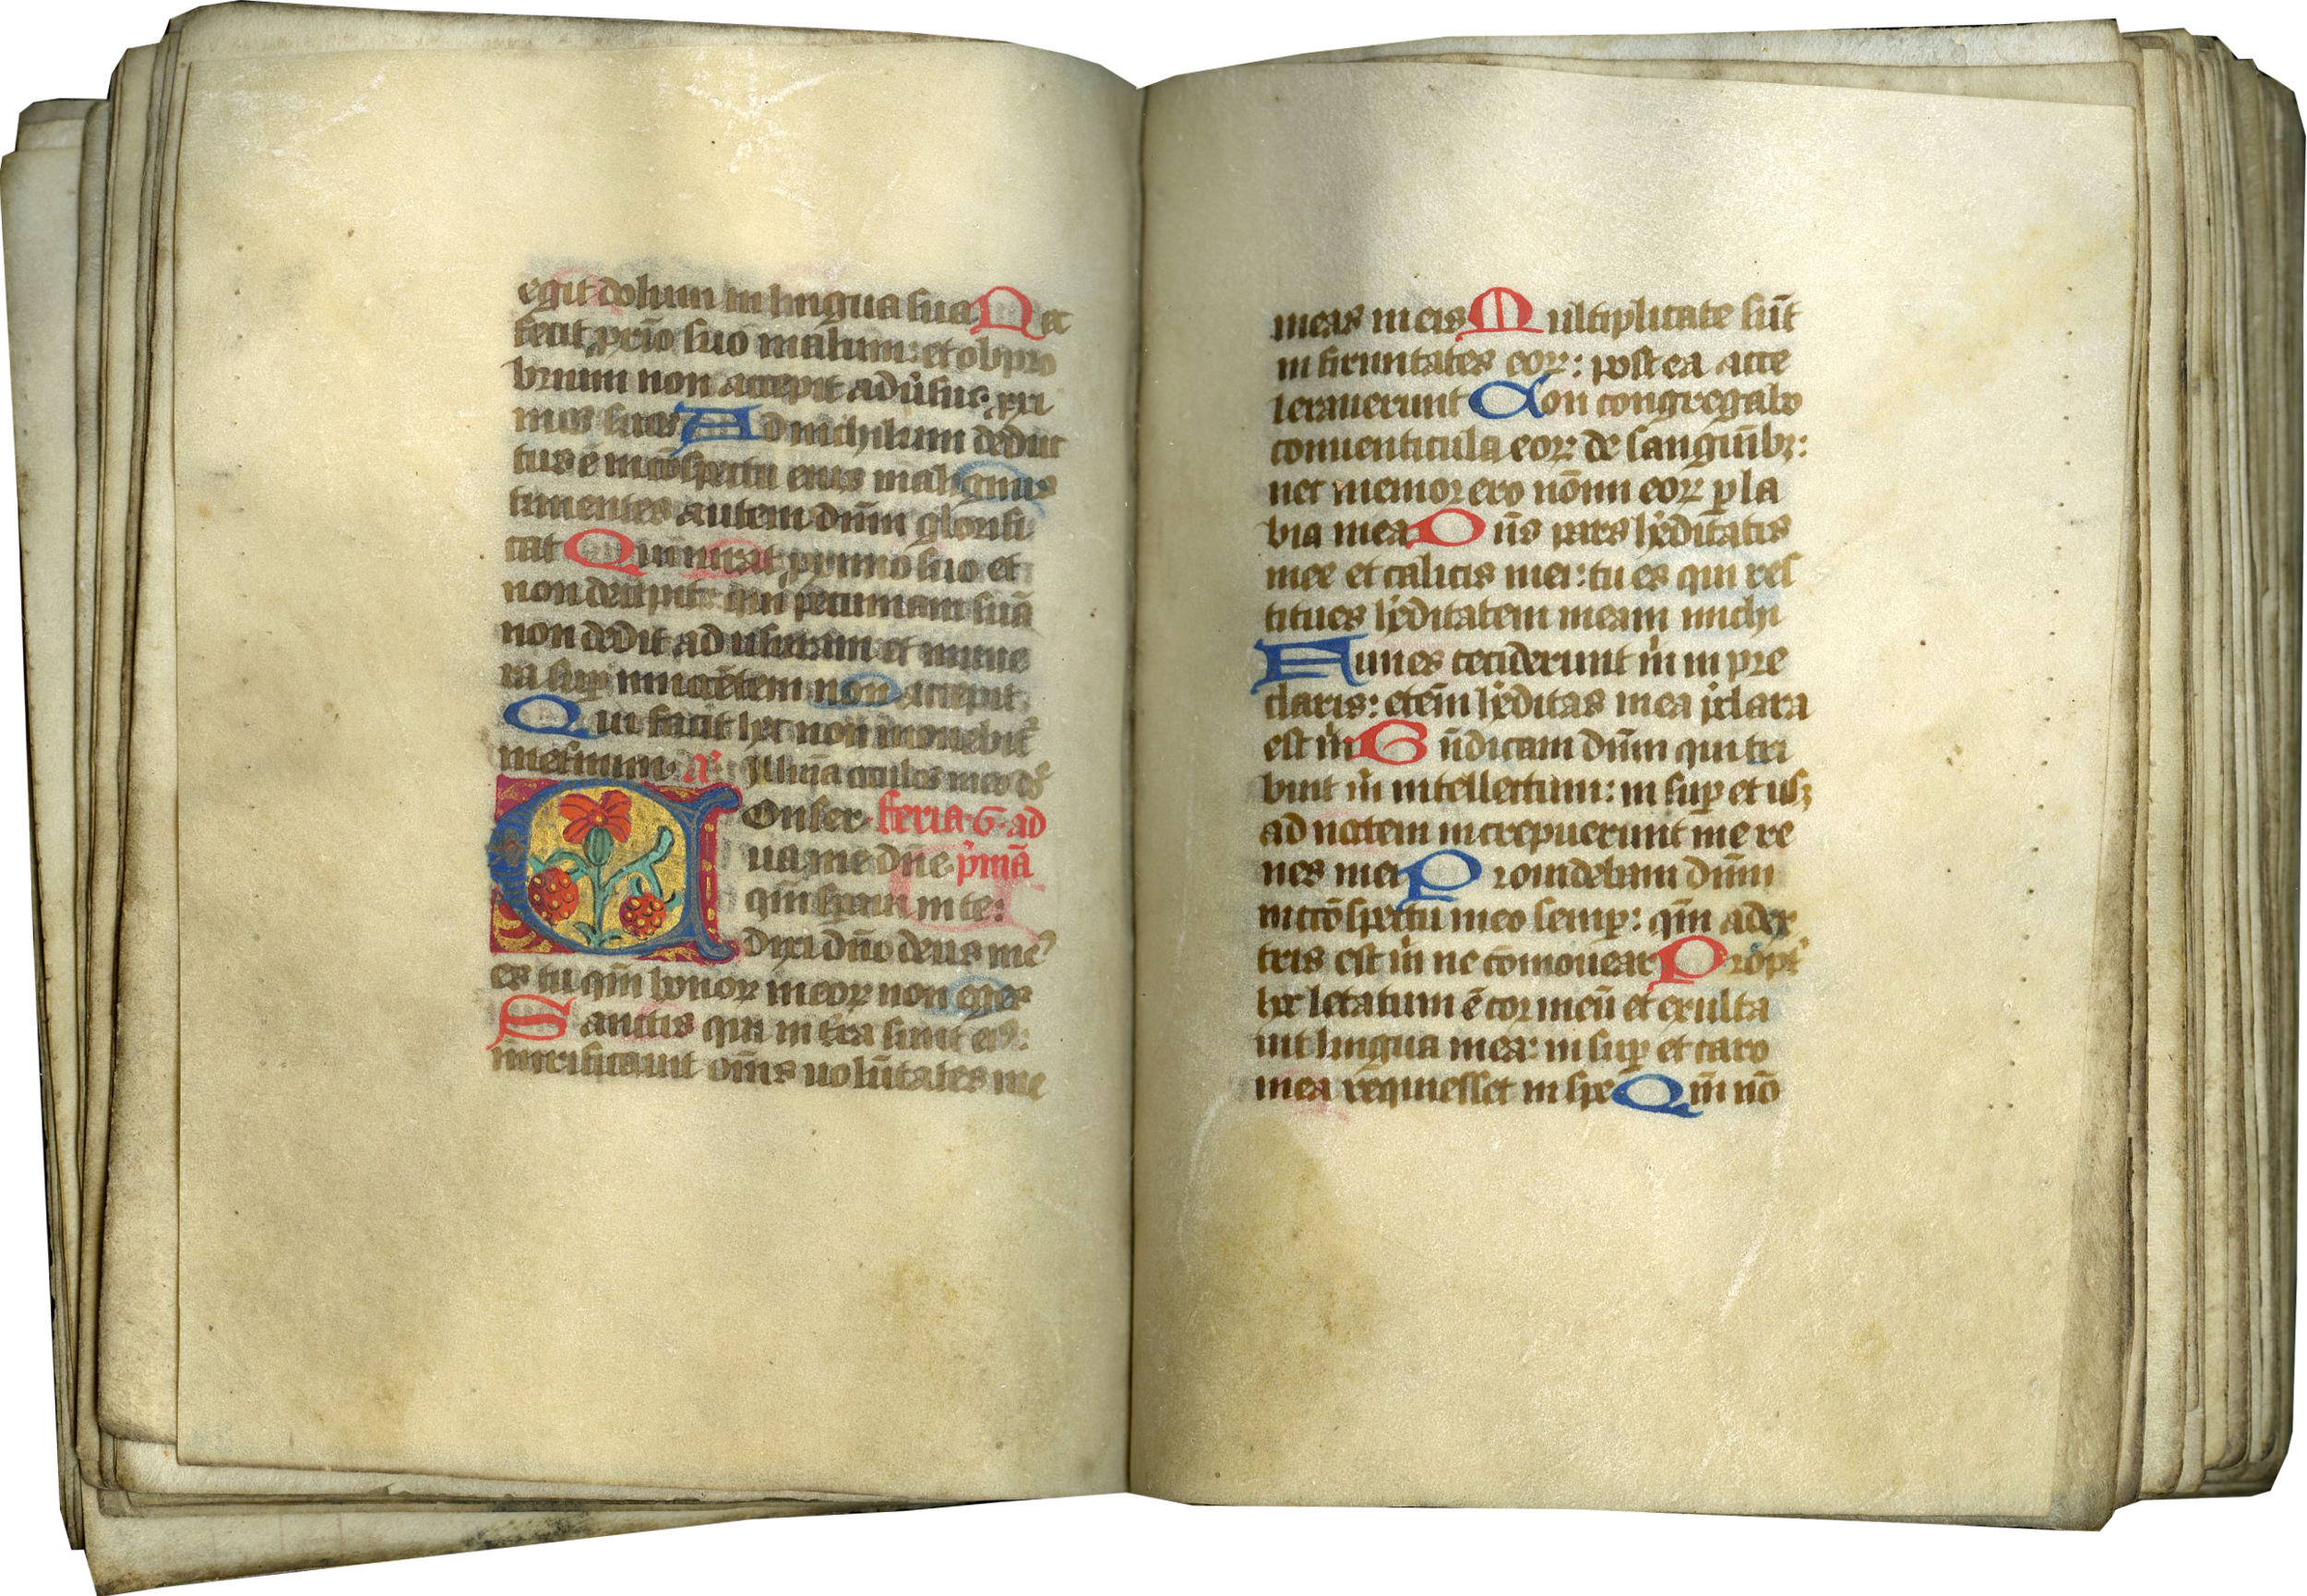 egit dolum in lingua sua Nec
fecit px̄io suo malum: et obpro
brium non accepit adu̾sus prx̄i
mos suos Ad nichilum deduc
tus ē in cōspectu eius malignus
timentes autem dn̄m glorifi
cat Qui iurat pximo suo et
non decipit: qui pecuniam suā
non dedit ad usuram et mune
ra sup innocētem non accepit
Qui facit hec non mouebit᷑
meternum. a᷑. Illūīa oculos meos ds̄
Onser feria. 6. ad
ua me dn̄e p̾mā
qm̄ spaui in te:
Dixi dn̄o deus me᷒
es tu qm̄ bonoꝝ meoꝝ non eges
Sanctis qui in t̾ra sunt ei᷒:
mirificauit om̄s uolūtates me
meas in eis Multiplicate sūt
infirmitates eoꝝ: postea acce
lerauerunt Non congregabo
conuenticula eoꝝ de sanguinībꝫ:
nec memor ero nōīm eoꝝ p la
bia mea Dn̄s pars hēditātis
mee et calicis mei: tu es qui res
titues hēditatem meam michi
Funes ceciderunt m̄ in pre
claris: eteī̄m hēditas mea p̄clara
est m̄ Bn̄dicam dn̄m qui tri
buit m̄ intellectum: in sup et usꝫ
ad noctem increpuerunt me re
nes mei Prouidebam dn̄m
in cōspectu meo semp: qm̄ a dex
tris est m̄ ne cōmouear Propt̾
hec letatum ē cor meū et exulta
uit lingua mea: in sup et caro
mea requiesset in spe Qm̄ nō